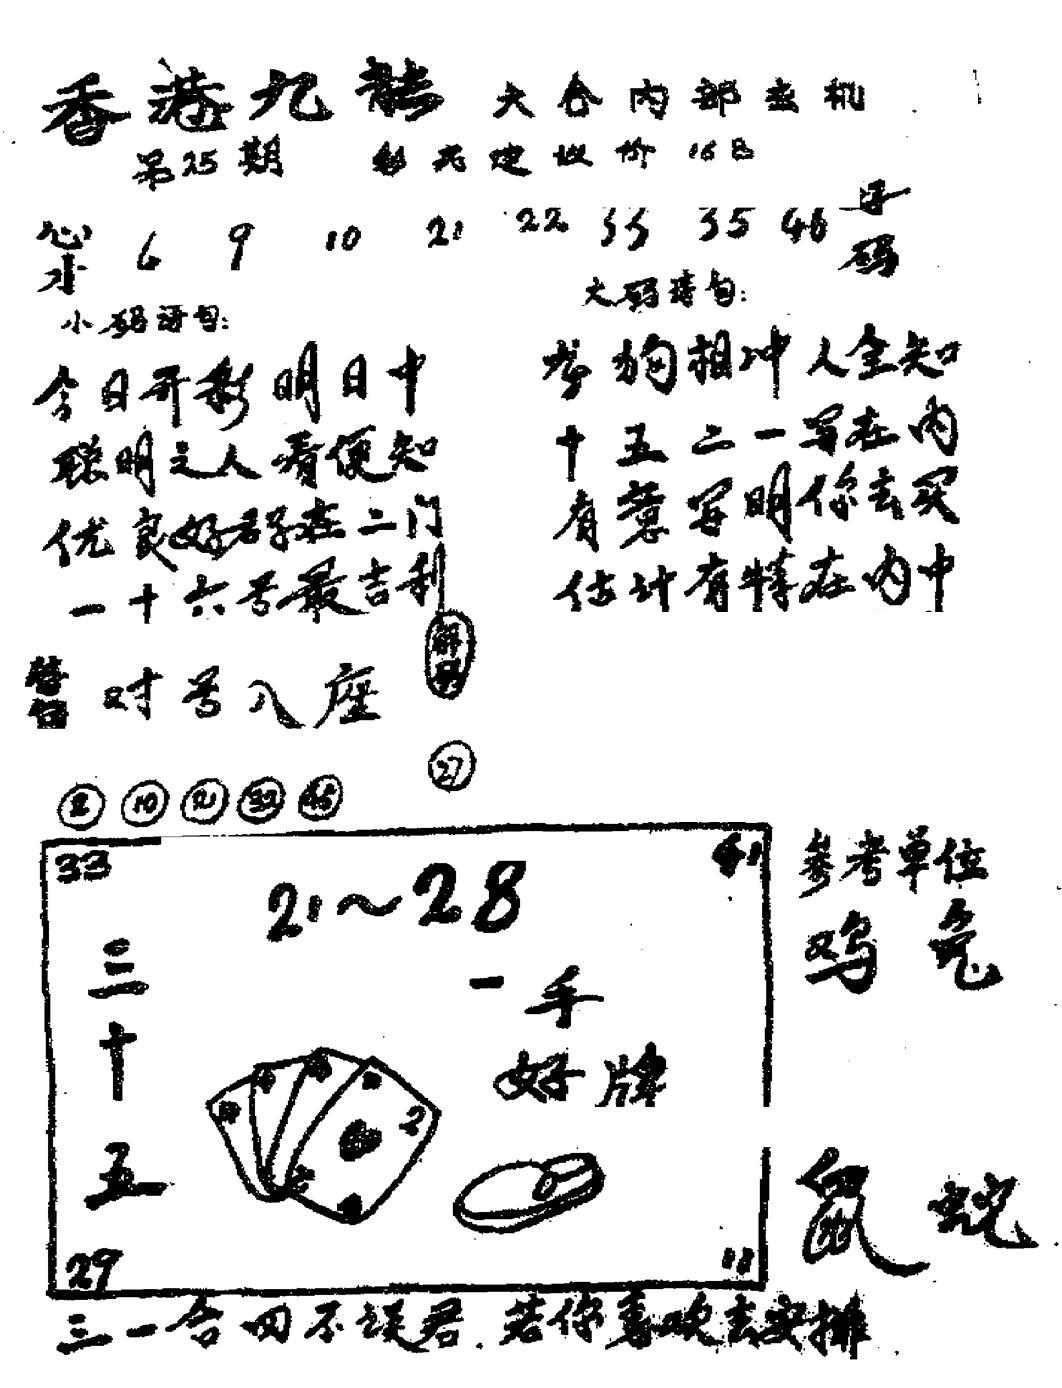 香港九龙 大会内部玄机
第25期 彩民建议价 16日
心水 6 9 10 21 22 33 35 46 好码
小码语句:
今日开彩明日中
聪明之人看便知
优良好君子在二门
一十六号最吉利
大码猜句:
狗相冲人全知
十五二一写在内
有意写明你去买
估计有特在内中
对号入座
解码
27
2 10 21 32 45
33 21~28 41
三十五
一手
好牌
2
29 11
参考单位
鸡 兔
鼠 蛇
三一合四不误君.若你喜欢去安排